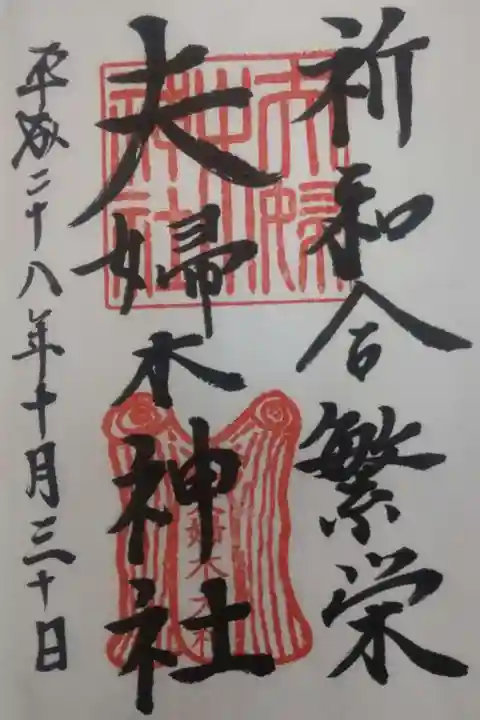 祈和合繁栄
夫婦木神社
平成二十八年十月三十日
夫婦木
神社